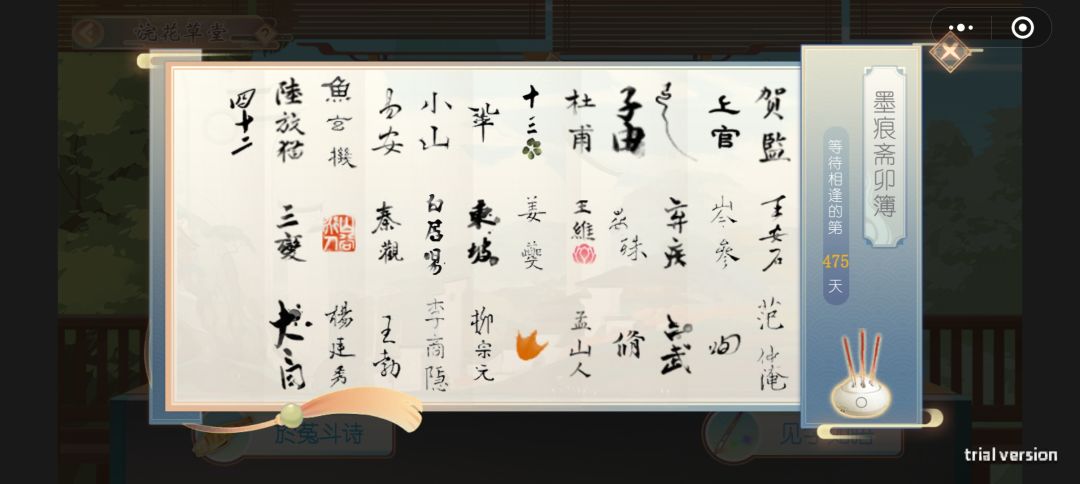 浣花草堂
?
墨痕斋卯簿
等待相逢的第
475
天
贺監
王安石
范仲淹
上官
岑参
子由
弃疾
晏殊
脩
杜甫
王維
孟山人
十三
姜夔
巩
東坡
柳宗元
小山
白居易
李商隐
易安
秦觀
王勃
魚玄機
楊廷秀
陸放猫
三變
四十二
於菟斗诗
trial version